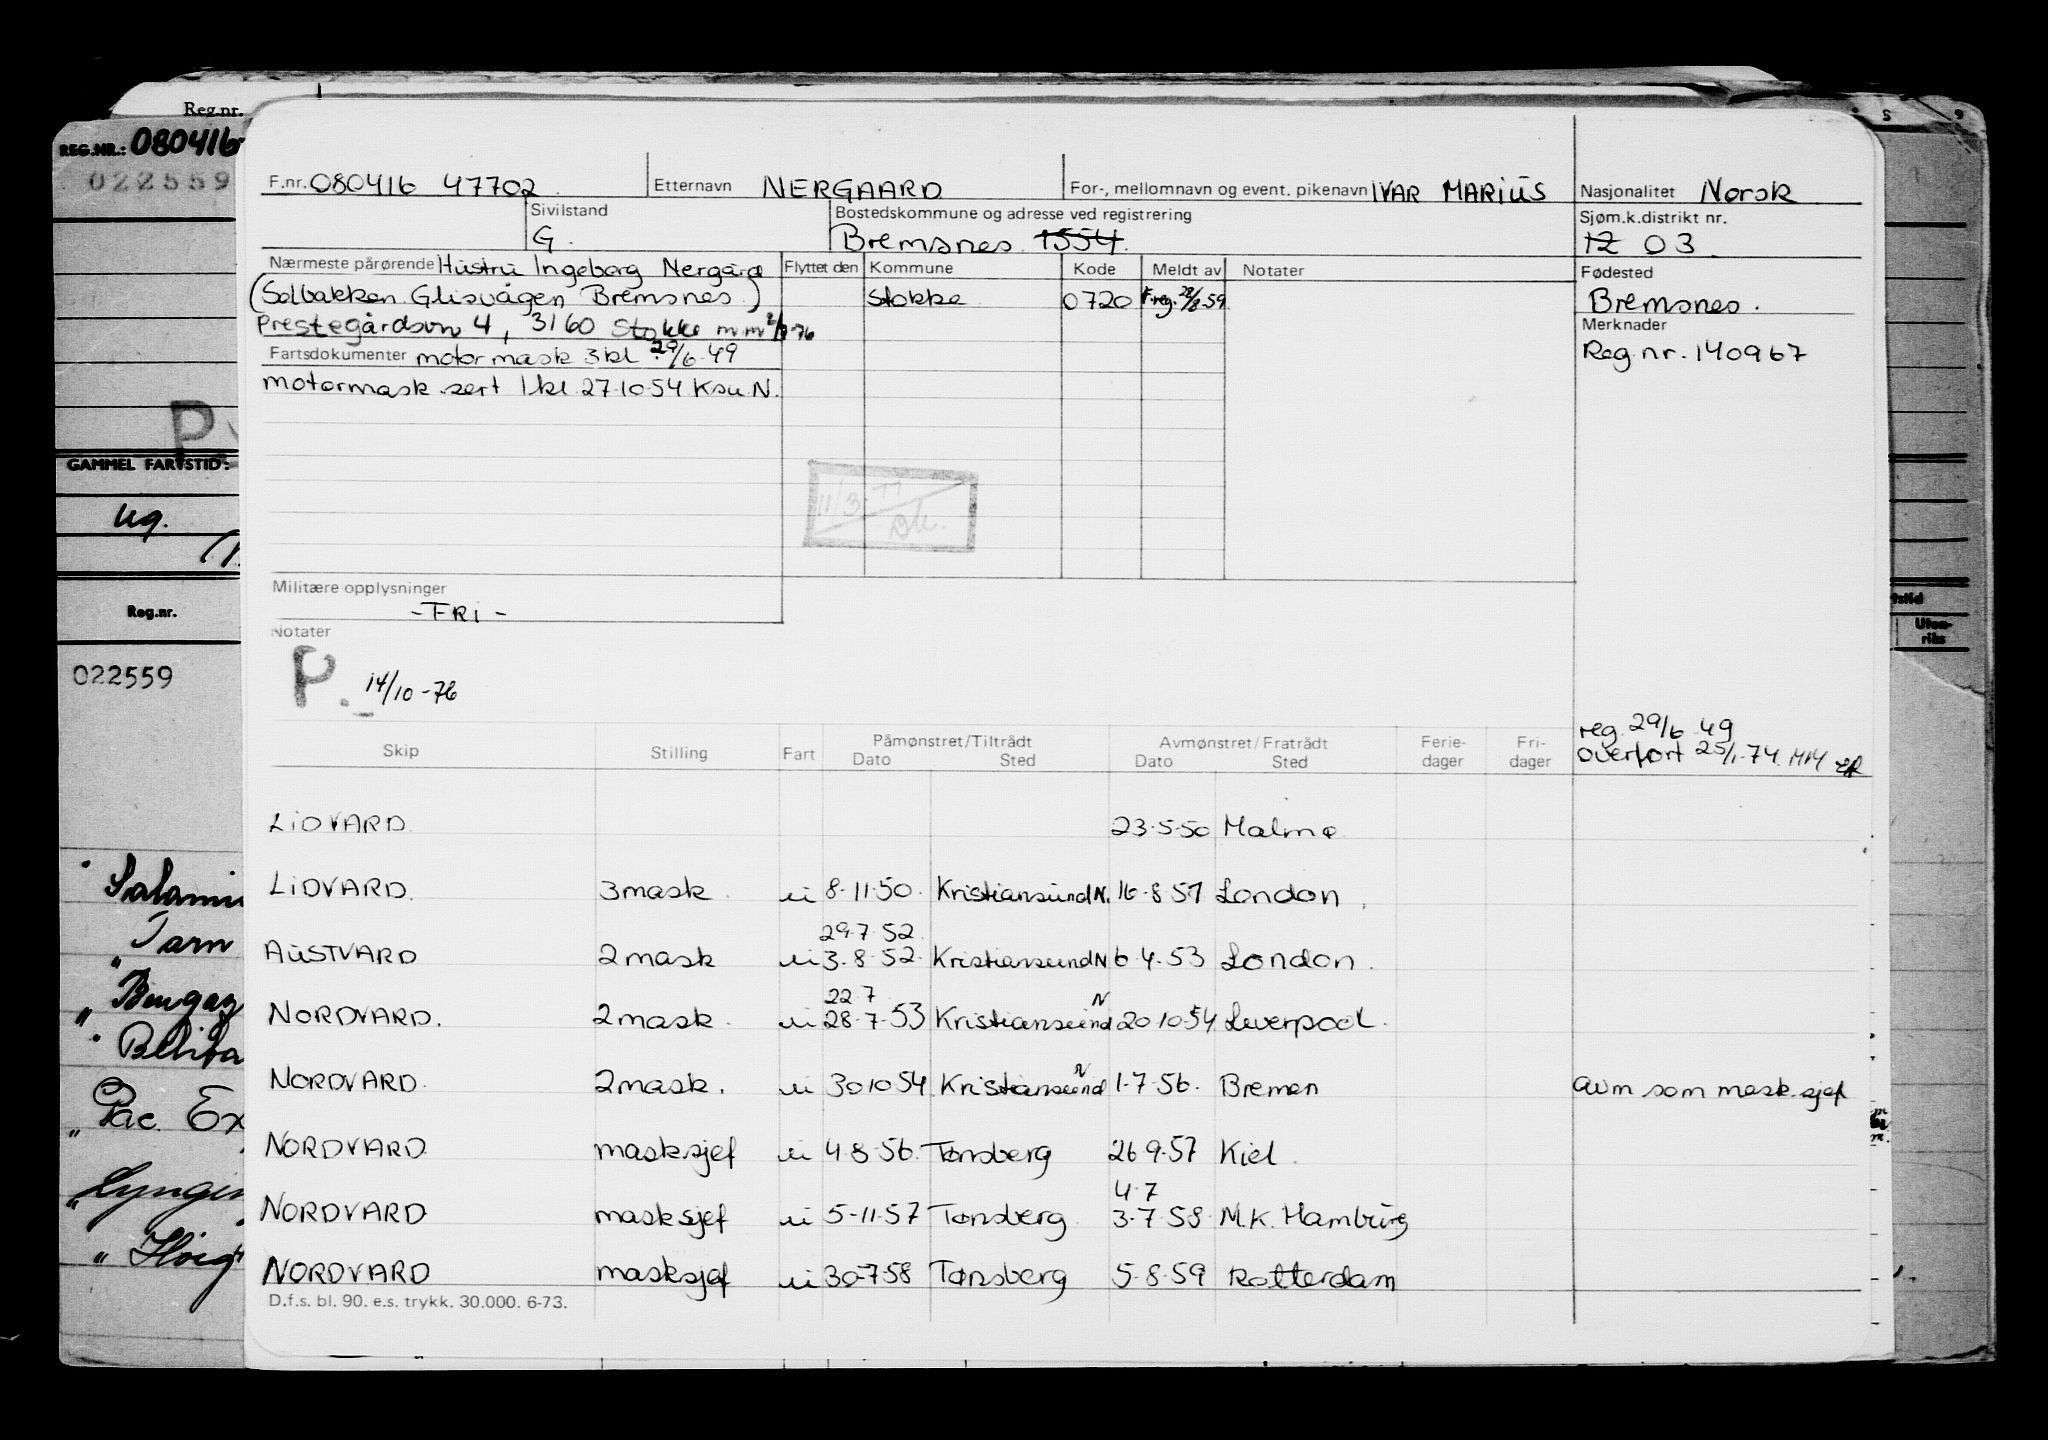 Reg.nr.
REG.NR.: 080416
022559
F.nr. 080416 47702 Etternavn NERGAARD For-, mellomnavn og event. pikenavn IVAR MARIUS Nasjonalitet Norsk
Sivilstand Bostedskommune og adresse ved registrering Sjøm.k.distrikt nr.
G. Bremsnes 1554 12 03
Nærmeste pårørende Hustru Ingeborg Nergård Flyttet den Kommune Kode Meldt av Notater Fødested
(Solbakken Glisvågen Bremsnes) Stokke 0720 F.reg. 28/8-59 Bremsnes.
Prestegårdsvn 4, 3160 Stokke Merknader
Fartsdokumenter motormask 3 kl. 29/6-49 Reg.nr. 140967
motormask.sert 1.kl 27-10-54 Ksu.N.
GAMMEL FARTSTID:
ug.
11/3-77
Militære opplysninger
-FRI-
Reg.nr.
Uten-
riks
Notater
022559
P. 14/10-76
reg. 29/6 49
overført 25/1-74. MM
Skip Stilling Fart Påmønstret/Tiltrådt Avmønstret/Fratrådt Ferie- Fri-
Dato Sted Dato Sted dager dager
LIDVARD 23-5-50 Malmø
LIDVARD. 3mask. ui 8-11-50. Kristiansund N. 16-8-51 London.
29-7-52.
AUSTVARD 2mask ui 3-8-52. Kristiansund N 6-4-53 London.
22 7
NORDVARD. 2mask. ui 28-7-53 Kristiansund N 20 10-54 Liverpool.
NORDVARD. 2mask. ui 30 10 54 Kristiansund N 1-7-56. Bremen avm som mask.sjef
NORDVARD. mask.sjef ui 4-8-56. Tønsberg 26 9-57 Kiel.
4-7
NORDVARD mask sjef ui 5-11-57 Tønsberg 3-7-58 M.K. Hamburg
NORDVARD mask sjef ui 30-7-58 Tønsberg 5-8-59 Rotterdam
D.f.s. bl. 90. e.s. trykk. 30.000. 6-73.